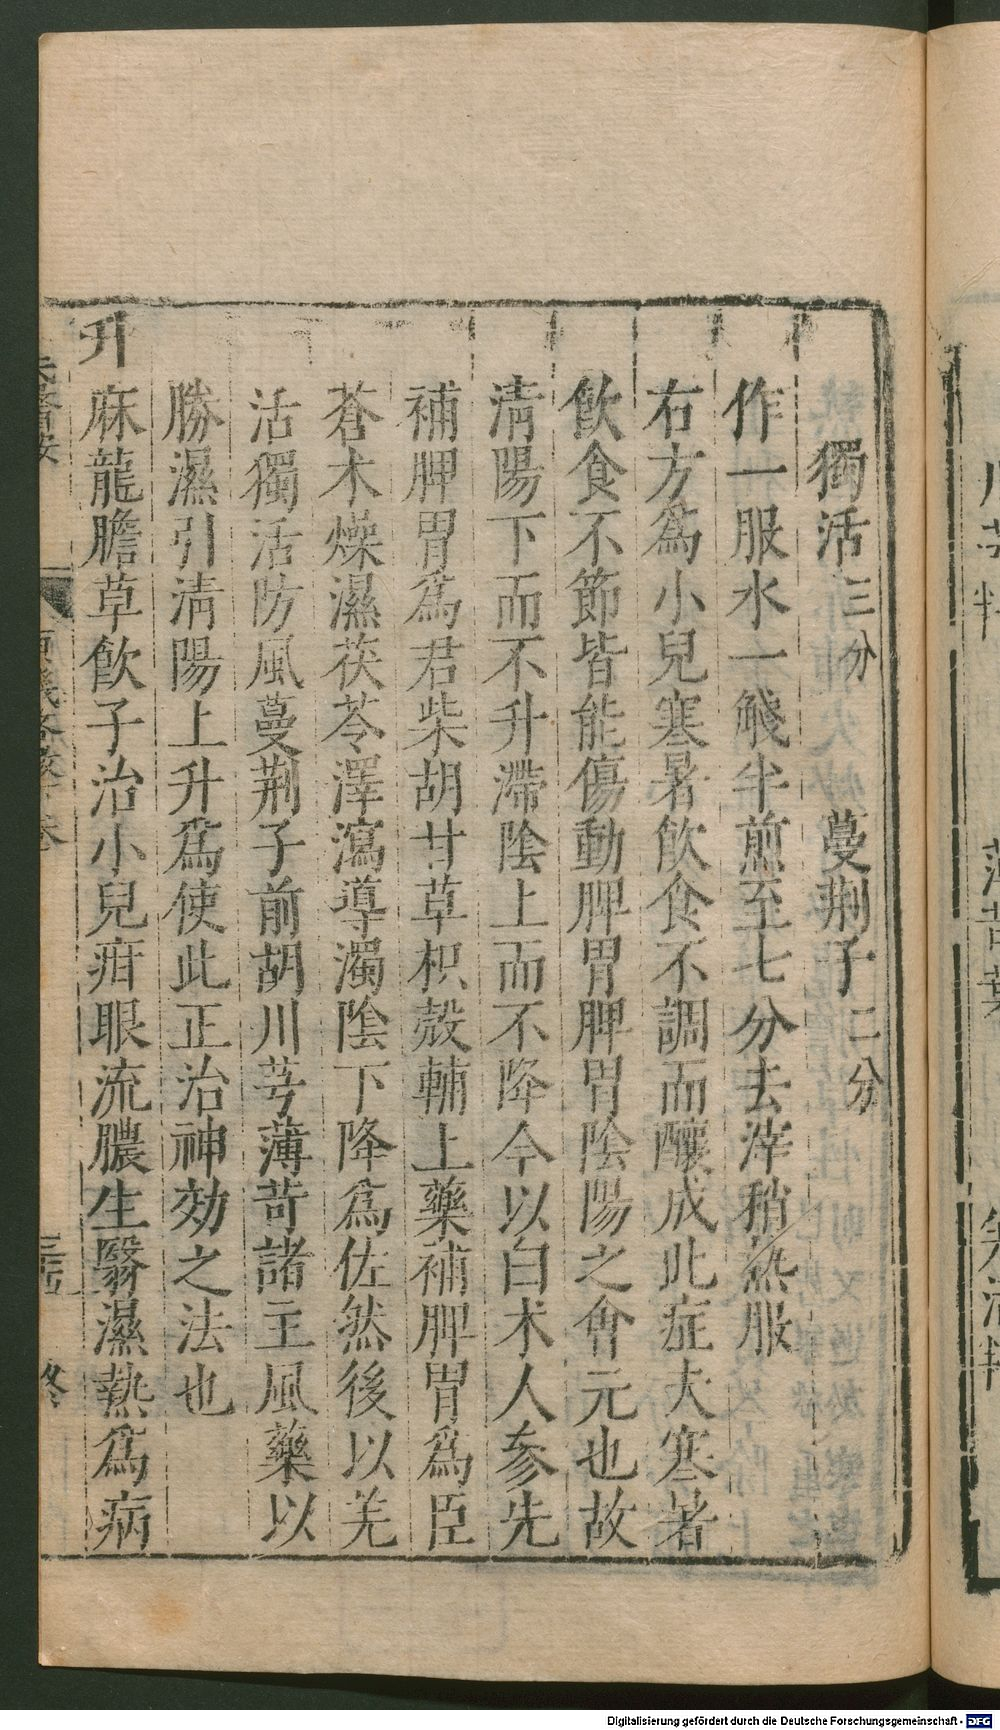 獨活三分 蔓荆子二分
作一服水一醆半煎至七分去滓稍熱服
右方爲小兒寒暑飲食不調而釀成此症夫寒暑
飲食不節皆能傷動脾胃脾胃陰陽之會元也故
清陽下而不升滯陰上而不降今以白术人參先
補脾胃爲君柴胡甘草枳殼輔上藥補脾胃爲臣
蒼术燥濕茯苓澤瀉導濁陰下降爲佐然後以羌
活獨活防風蔓荆子前胡川芎薄苛諸主風藥以
勝濕引清陽上升爲使此正治神効之法也
升麻龍膽草飲子治小兒疳眼流膿生翳濕熱爲病
終
Digitalisierung gefördert durch die Deutsche Forschungsgemeinschaft - DFG